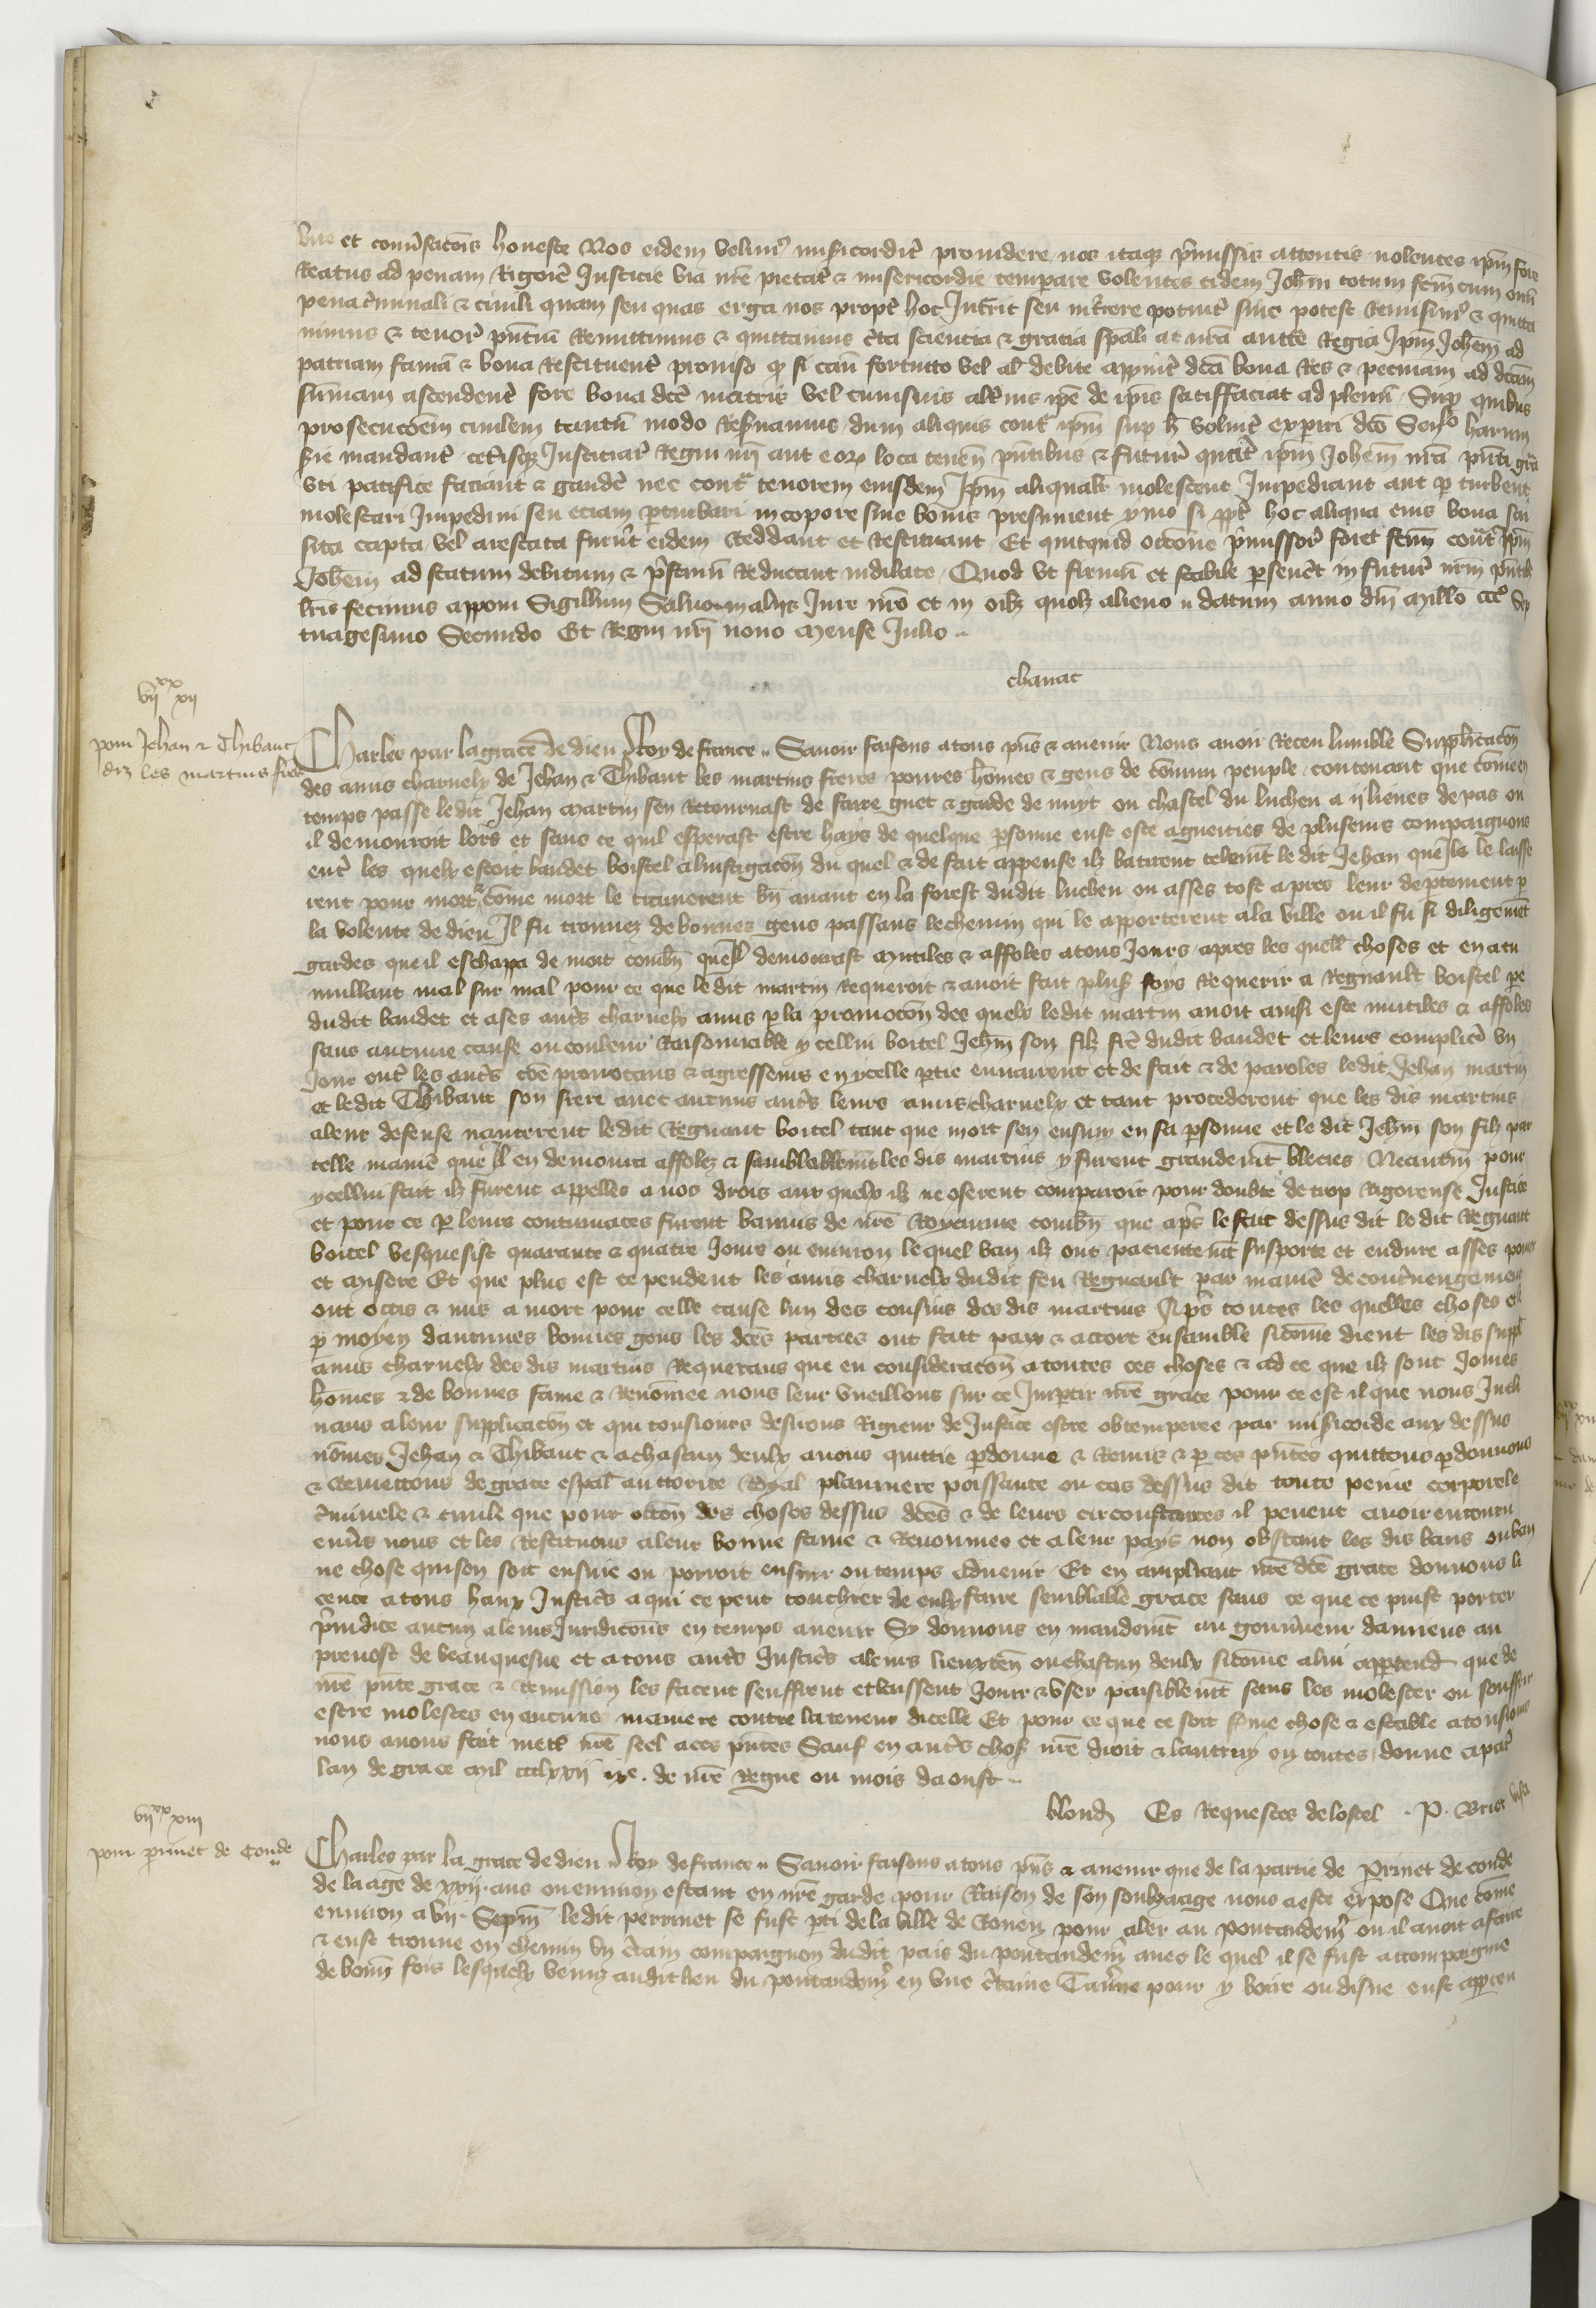 vite et conversacionis honeste Nos eidem velimus misericorditer providere nos itaque premissis attentis nolentes ipsum fore
Reatus ad penam Rigorem Justicie via nostre pietatis & misericordie temperare volentes eidem Johanni totum factum cum omni
pena criminali & civili quam seu quas erga nos propter hoc Incurrit seu incurrere potuit sive potest Remisimus & quitta
vimus & tenore presentium Remittimus & quittamus certa scientia & gratia speciali ac nostra auctoritate Regia Ipsum Johannem ad
patriam famam & bona Restituentes proviso quod si casu fortuito vel alias debite apparuerit dicta bona Res & pecuniam ad dictam
summam ascendentes fore bona dicte matris vel cuiusvis alterius ipse de ipsis satisfaciat ad plenum Super quibus
prosecucionem civilem tantum modo Reservamus dum aliquis contra ipsum super hoc voluerit experiri dicto Senescallo harum
serie mandantes ceterisque Justiciariis Regni nostri aut eorum loca tenentibus presentibus & futuris quatinus ipsum Johannem nostra presenti gratia
uti pacifice faciant & gaudere nec contra tenorem eiusdem Ipsum aliqualiter molestent Impediant aut perturbent
molestari Impediri seu eciam perturbari in corpore sive bonis presumient ymo si propter hoc aliqua eius bona sai
sita capta vel arrestata fuerint eidem Reddant et Restituant Et quitquid occasione premissorum foret factum contra ipsum
Johannem ad statum debitum & pristinum Reducant indilate Quod ut firmum et stabile perseveret in futurum nostrum presentibus
litteris fecimus apponi Sigillum Salvo in aliis Jure nostro et in omnibus quolibet alieno datum anno domini millo CCCo Sep
tuagesimo Secundo Et Regni nostri nono Mense Julio
chanac
vii xx xii
pour Jehan & Thibaut
diz les martins freres
Charles par la grace de dieu Roy de france Savoir faisons a tous presens & avenir Nous avoir Receu lumble Supplicacion
des amis charnelx de Jehan & Thibaut les martins freres poures hommes & gens de commun peuple contenant que comme en
temps passe ledit Jehan martin sen Retournast de faire guet & garde de nuyt ou chastel du lucheu a ii lieues de pas ou
il demouroit lors et sans ce quil esperast estre hays de quelque personne eust este agueities de pluseurs compaignons
entre les quelx estoit baudet boistel a linstigacion du quel & de fait appense ilz batirent telement le dit Jehan que ilz le laisse
rent pour mort & comme mort le trainerent bien avant en la forest dudit lucheu ou asses tost apres leur departement par
la volente de dieu Il fu trouvez de bonnes gens passans le chemin qui le apporterent a la ville ou il fu si diligement
gardes que il eschapa de mort combien quil demourast mutiles & affoles a tous Jours apres les quelles choses et en acu
mullant mal sur mal pour ce que le dit martin Requeroit & avoit fait pluseurs foys Requerir a Regnault boistel pere
dudit baudet et a ses autres charnelx amis par la promocion des quelx ledit martin avoit ainsi este mutiles & affoles
sans aucune cause ou couleur Raisonnable ycellui boitel Jehan son filz frere dudit baudet et leurs complices un
Jour entre les autres come provocans & agresseurs en ycelle partie envairent et de fait & de paroles ledit Jehan martin
et ledit Thibaut son frere avec aucuns autres leurs amis charnelx et tant procederent que les dis martins
a leur defense navrerent ledit Regnaut boitel tant que mort sen ensuy en sa personne et le dit Jehan son filz par
telle maniere que il en demoura affolez & semblablement les dis martins y furent grandement blecies Neantmoins pour
ycellui fait ilz furent appelles a nos drois aux quelx ilz ne oserent comparoir pour doubte de trop Rigoreuse Justice
et pour ce par leurs contumaces furent bannis de nostre Royaume combien que apres le fait dessus dit le dit Regnaut
boitel vesquesist quarante & quatre Jours ou environ lequel ban ilz ont patiemment susporte et endure asses povrement
et misere Et que plus est ce pendent les amis charnelx dudit feu Regnault par maniere de contrevengement
ont occis & mis a mort pour celle cause lun des cousins des dis martins Apres toutes les quelles choses et
par moyen daucunes bonnes gens les dictes parties ont fait paix & accort ensamble sicomme dient les dis suppliants
amis charnelx des dis martins Requerans que en consideracion a toutes ces choses & ad ce que ilz sont Jones
hommes & de bonnes fame & Renommee nous leur vueillons sur ce Impartir nostre grace pour ce est il que nous Incli
nans a leur supplicacion et qui tousiours desirons Rigueur de Justice estre obtemperee par misericorde aux dessus
nommes Jehan & Thibaut & a chascun deulx avons quittie pardonne & Remis & par ces presentes quittons pardonnons
& Remettons de grace especial auctorite Royal planniere poissance ou cas dessus dit toute peine corporele
criminele & civile que pour occasion des choses dessus dictes & de leurs circonstances il pevent avoir encouru
envers nous et les Restituons a leur bonne fame & Renommee et a leur pays non obstant les dis bans ou ban
ne chose qui sen soit ensuie ou porroit ensuir ou temps advenir Et en ampliant nostre dicte grace donnons li
cence a tous haux Justiciers a qui ce peut touchier de eulx faire semblable grace sans ce que ce puist porter
preiudice aucun a leurs Juridicions en temps avenir Sy donnons en mandement au gouverneur damiens au
prevost de beauquesne et a tous autres Justiciers a leurs lieuxtenans ou chascun deulx sicomme a lui appartendra que de
nostre presente grace & Remission les facent seuffrent et laissent Joir & user paisiblement sans les molester ou souffrir
estre molestes en aucune maniere contre la teneur dicelle Et pour ce que ce soit ferme chose & estable a tousiours
nous avons fait mettre nostre seel a ces presentes Sauf en autres choses nostre droit & lautruy en toutes donne a paris
lan de grace mil ccclxxii ixe. de nostre Regne ou mois daoust
blond Es Requestes de lostel . P. Briet visa
vii xx xiii
pour perrinet de Conde
Charles par la grace de dieu Roy de france Savoir faisons a tous presens & avenir que de la partie de Perinet de conde
de laage de xxii. ans ou environ estant en nostre garde pour Raison de son soubzaage nous a este expose Que comme
environ a vii. Sepmaines ledit perrinet se fust parti de la ville de Rouen pour aler au pontaudemer ou il avoit a faire
& eust trouve en chemin un certain compaignon dudit pais du pontaudemer avec le quel il se fust acompaigne
de bonne fois lesquelx venuz audit lieu du pontaudemer en une certaine Taverne pour y boire ou disner eust apperceu